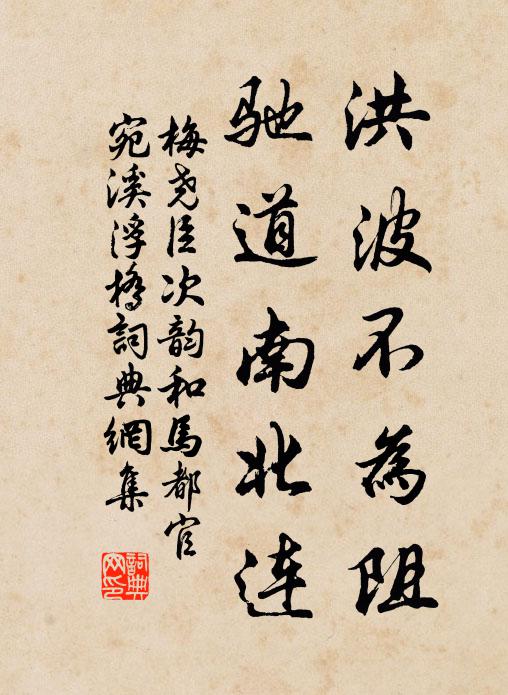 洪波不為阻
馳道南北连
梅尧臣次韵和馬都官
宛溪浮橋詞典網集
詞典
网印